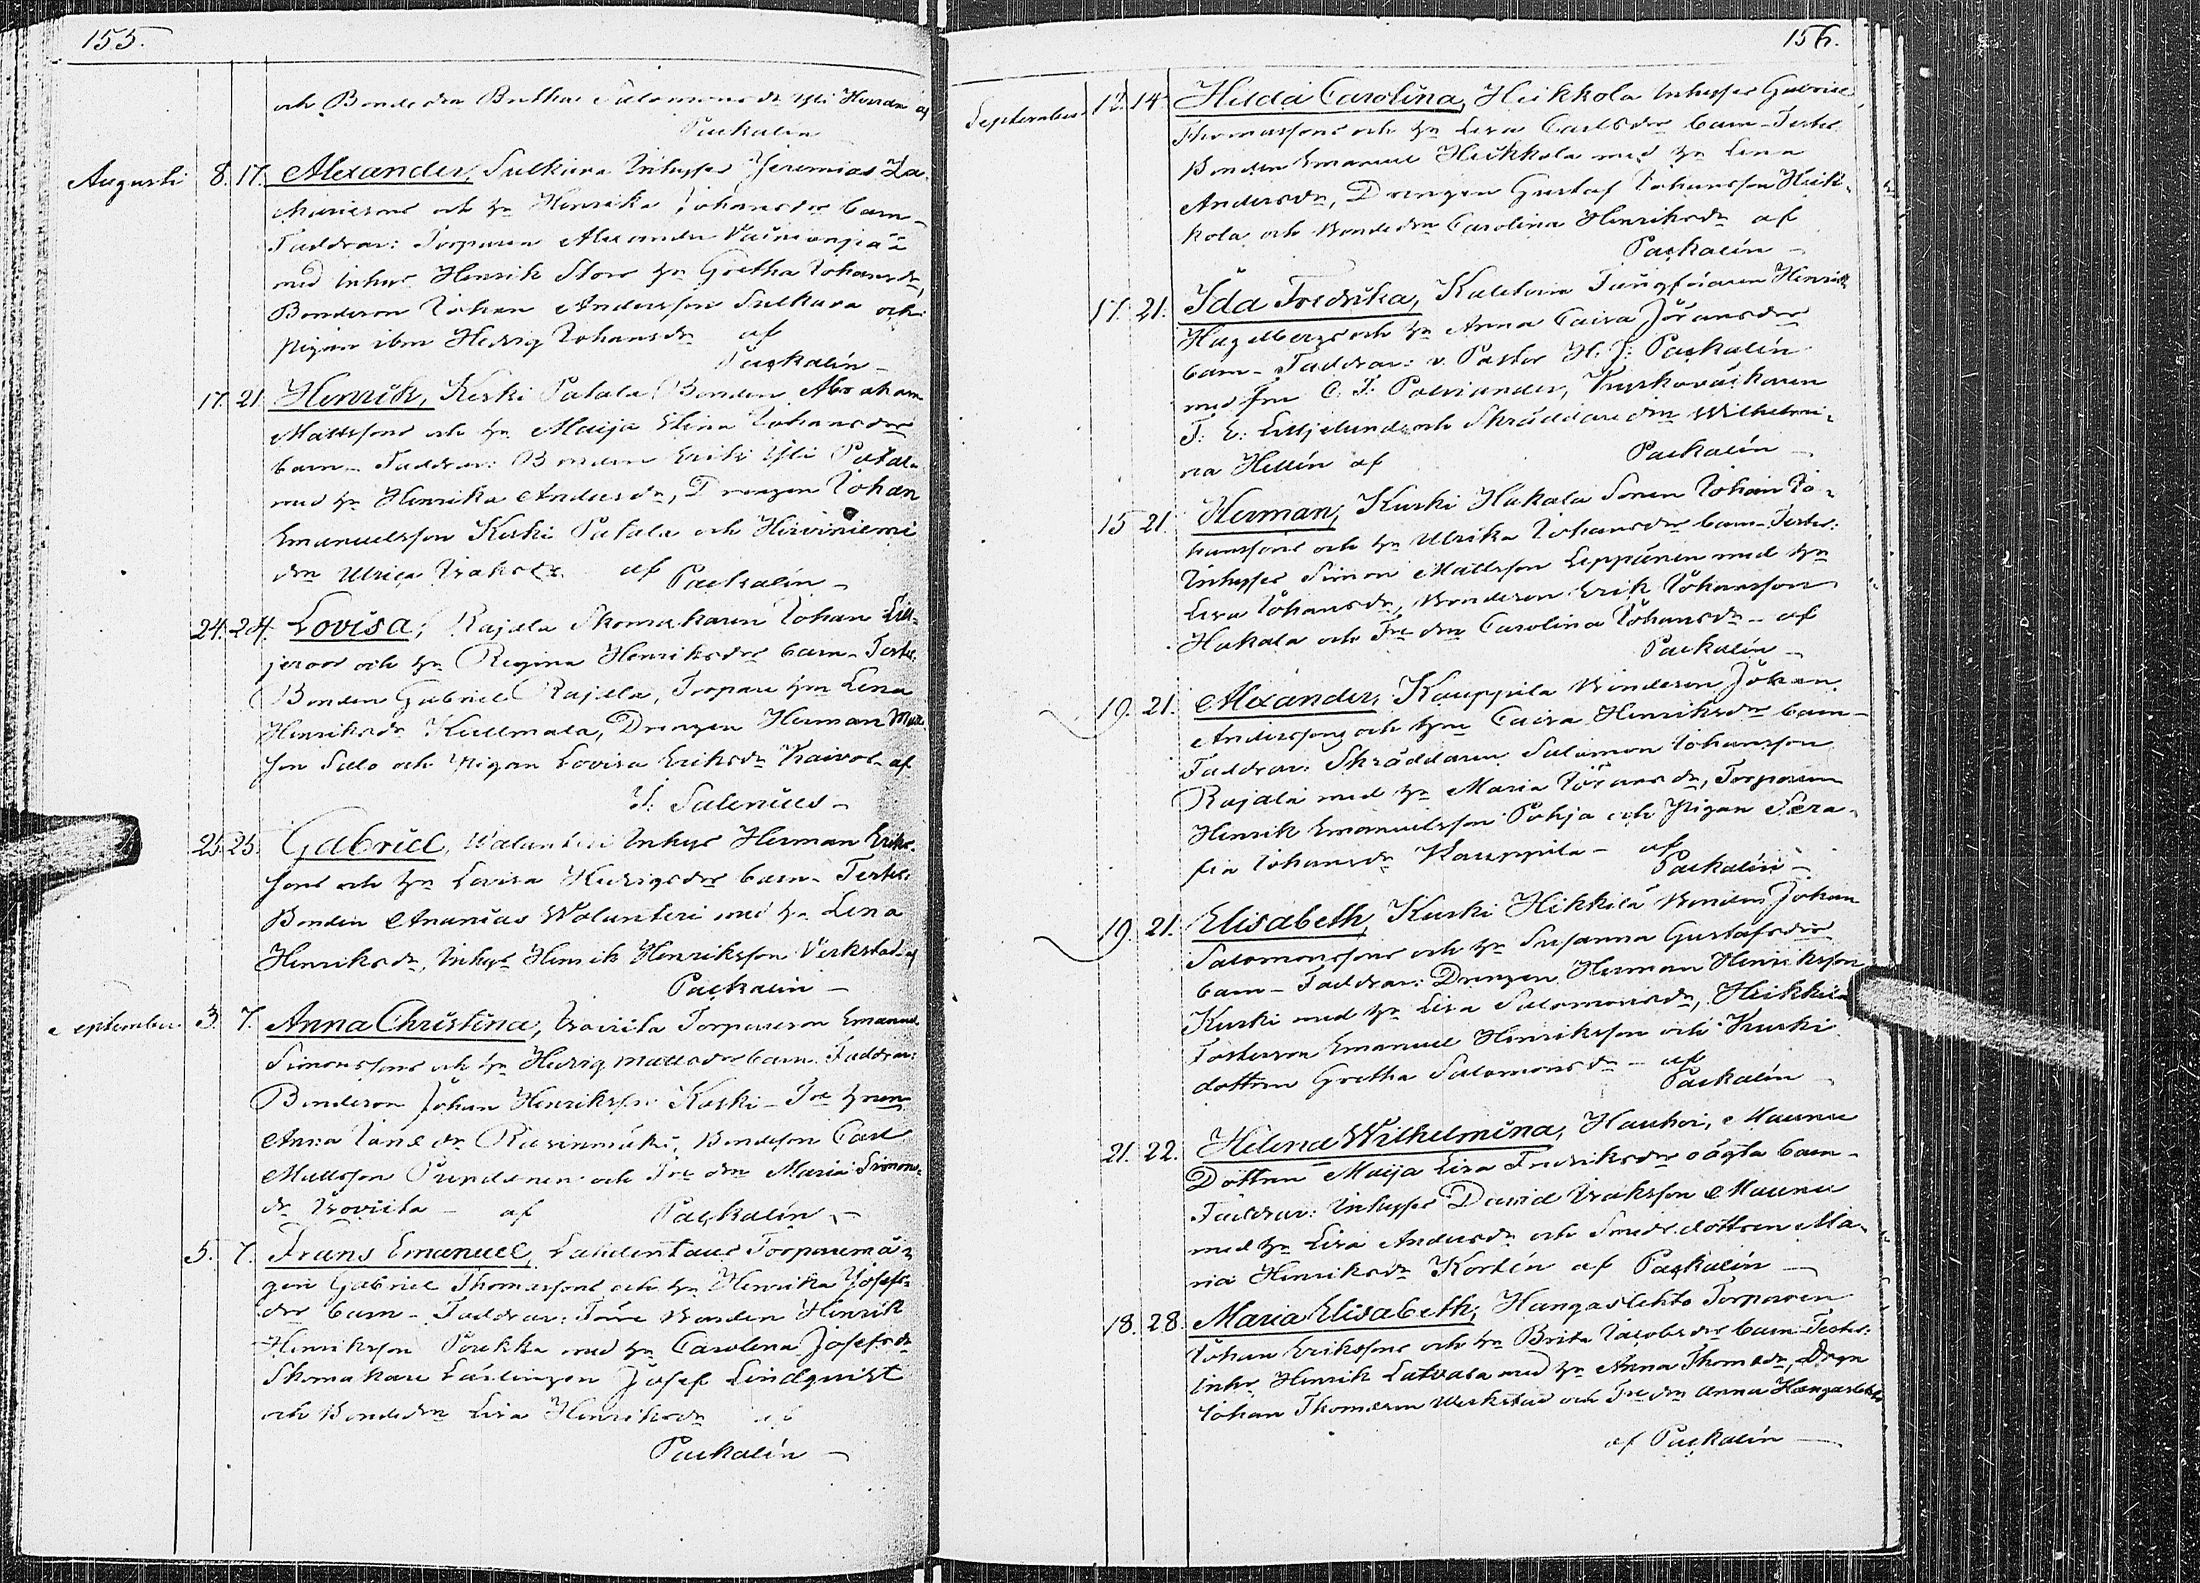 155.
och Bonde drn Brita Salomonsdr Yli Hourda af
Paskalin
Augusti 8. 17. Alexander, Sulkava Inhyses Jeremias Za-
kariesons och hu Henrika Johansdrs barn –
Faddrar: Torparen Alexander Vainionpää
med Inhys Henrik Stors hu Gretha Johansdr,
Bondeson Johan Andersson Sulkava och
pigan ibm Hedvig Johansdr af
Paskalin –
17. 21. Henrik, Keski Patala Bonden Abraham
Mattssons och hu Maija Elina Johansdrs
barn – Faddrar: Bonden Erik Yli Patala
med hu Henrika Andersdr, Drengen Johan
Emanuelsson Keski Patala och Hirviniemi
drn Ulrica Isaksdr af
Paskalin –
24. 24. Lovisa, Rajala Skomakaren Johan Lill-
jeroos och hu Regina Henriksdrs barn – Testes:
Bonden Gabriel Rajala, Torpare hun Lena
Henriksdr Kullmala, Drengen Herman Matts-
son Salo och Pigan Lovisa Eriksdr af
J: Salenius –
25. 25. Gabriel, Waluntiri Inhys Herman Eriks-
sons och hu Lovisa Hedrigsdrs barn – Testes:
Bonden Ananias Walunteri med hu Lena
Henriksdr, Inhys Henrik Henriksson Verkstad af
Paskalin –
September. 3. 7. Anna Christina, Isoviita Torpareson Emanuel
Simonssons och hu Hedvig Mattsdrs barn. Faddrar:
Bondeson Johan Henriksson Koski – Tre hrun
Anna Jansdr Rasinmäki, Bondeson Carl
Mattsson Pundanen och Tre drn Maria Simons-
dr Isoviita – af Paskalin –
5. 7. Frans Emanuel, Lahdentaus Torparemå-
gen Gabriel Thomassons och hu Henrika Josefs-
drs barn – Faddrar: Förre Bonden Henrik
Henriksson Poukka med hu Carolina Josefsdr
Skomakare Lärlingen Josef Lindqvist
och Bondedrn Lisa Henriksdr af
Paskalin –
156.
September. 12. 14. Hilda Carolina, Heikkola Inhyses Gabriel
Thomassons och hu Lisa Carlsdrs barn – Testes
Bonden Emanuel Heikkola med hu Lena
Andersdr, Drengen Gustaf Johansson Heik-
kola och Bondedrn Carolina Henriksdr af
Paskalin –
17. 21. Ida Fredrika, Kalliern Jungfruaren Henrik
Hagelbergs och hu Anna Caisa Jöransdrs
barn – Faddrar: v. Pastor H. J: Paskalin
med fru C. F: Polviander, Kyrkoväktaren
J: E: Lilljelund och Skräddaredrn Wilhelmi-
na Hellin af Paskalin –
15 21. Herman, Kurki Hakala Sonen Johan Jo-
hanssons och hu Ulrika Johansdrs barn – Testes:
Inhyses Simon Mattsson Leppänen med hu
Lisa Johansdr, Bondeson Erik Johansson
Hakala och Tre drn Carolina Johansdr – af
Paskalin –
19. 21. Alexander, Kauppila Bondeson Johan
Anderssons och hun Caisa Henriksdrs barn –
Faddrar: Skräddaren Salomon Johansson
Rajala med hu Maria Jöransdr, Torparen
Henrik Emanuelsson Pohja och Pigan Sera-
fia Johansdr Kauppila – af
Paskalin –
19. 21. Elisabeth, Kurki Heikkilä Bonden Johan
Salomonssons och hu Susanna Gustafsdrs
barn – Faddrar: Drengen Herman Henriksson
Kurki med hu Lisa Salomonsdr, Heikkilä
Fosterson Emanuel Henriksson och Kurki
dottren Gretha Salomonsdr – af
Paskalin –
21. 22. Helena Wilhelmina, Hauhoi, Maunu
Dottren Maija Lisa Fredriksdrs oägta barn –
Faddrar: Inhyses David Isaksson Maunu
med hu Lisa Andersdr och Smeds dottren Ma-
ria Henriksdr Kortén af Paskalin –
18. 28. Maria Elisabeth, Hangaslehto Torparen
Johan Erikssons och hu Brita Jacobsdrs barn Testes:
Inhs Henrik Latvala med hu Anna Thomsdr, Drgn
Johan Thomasson Werkstad och Tre drn Anna Hangaslehto
af Paskalin –